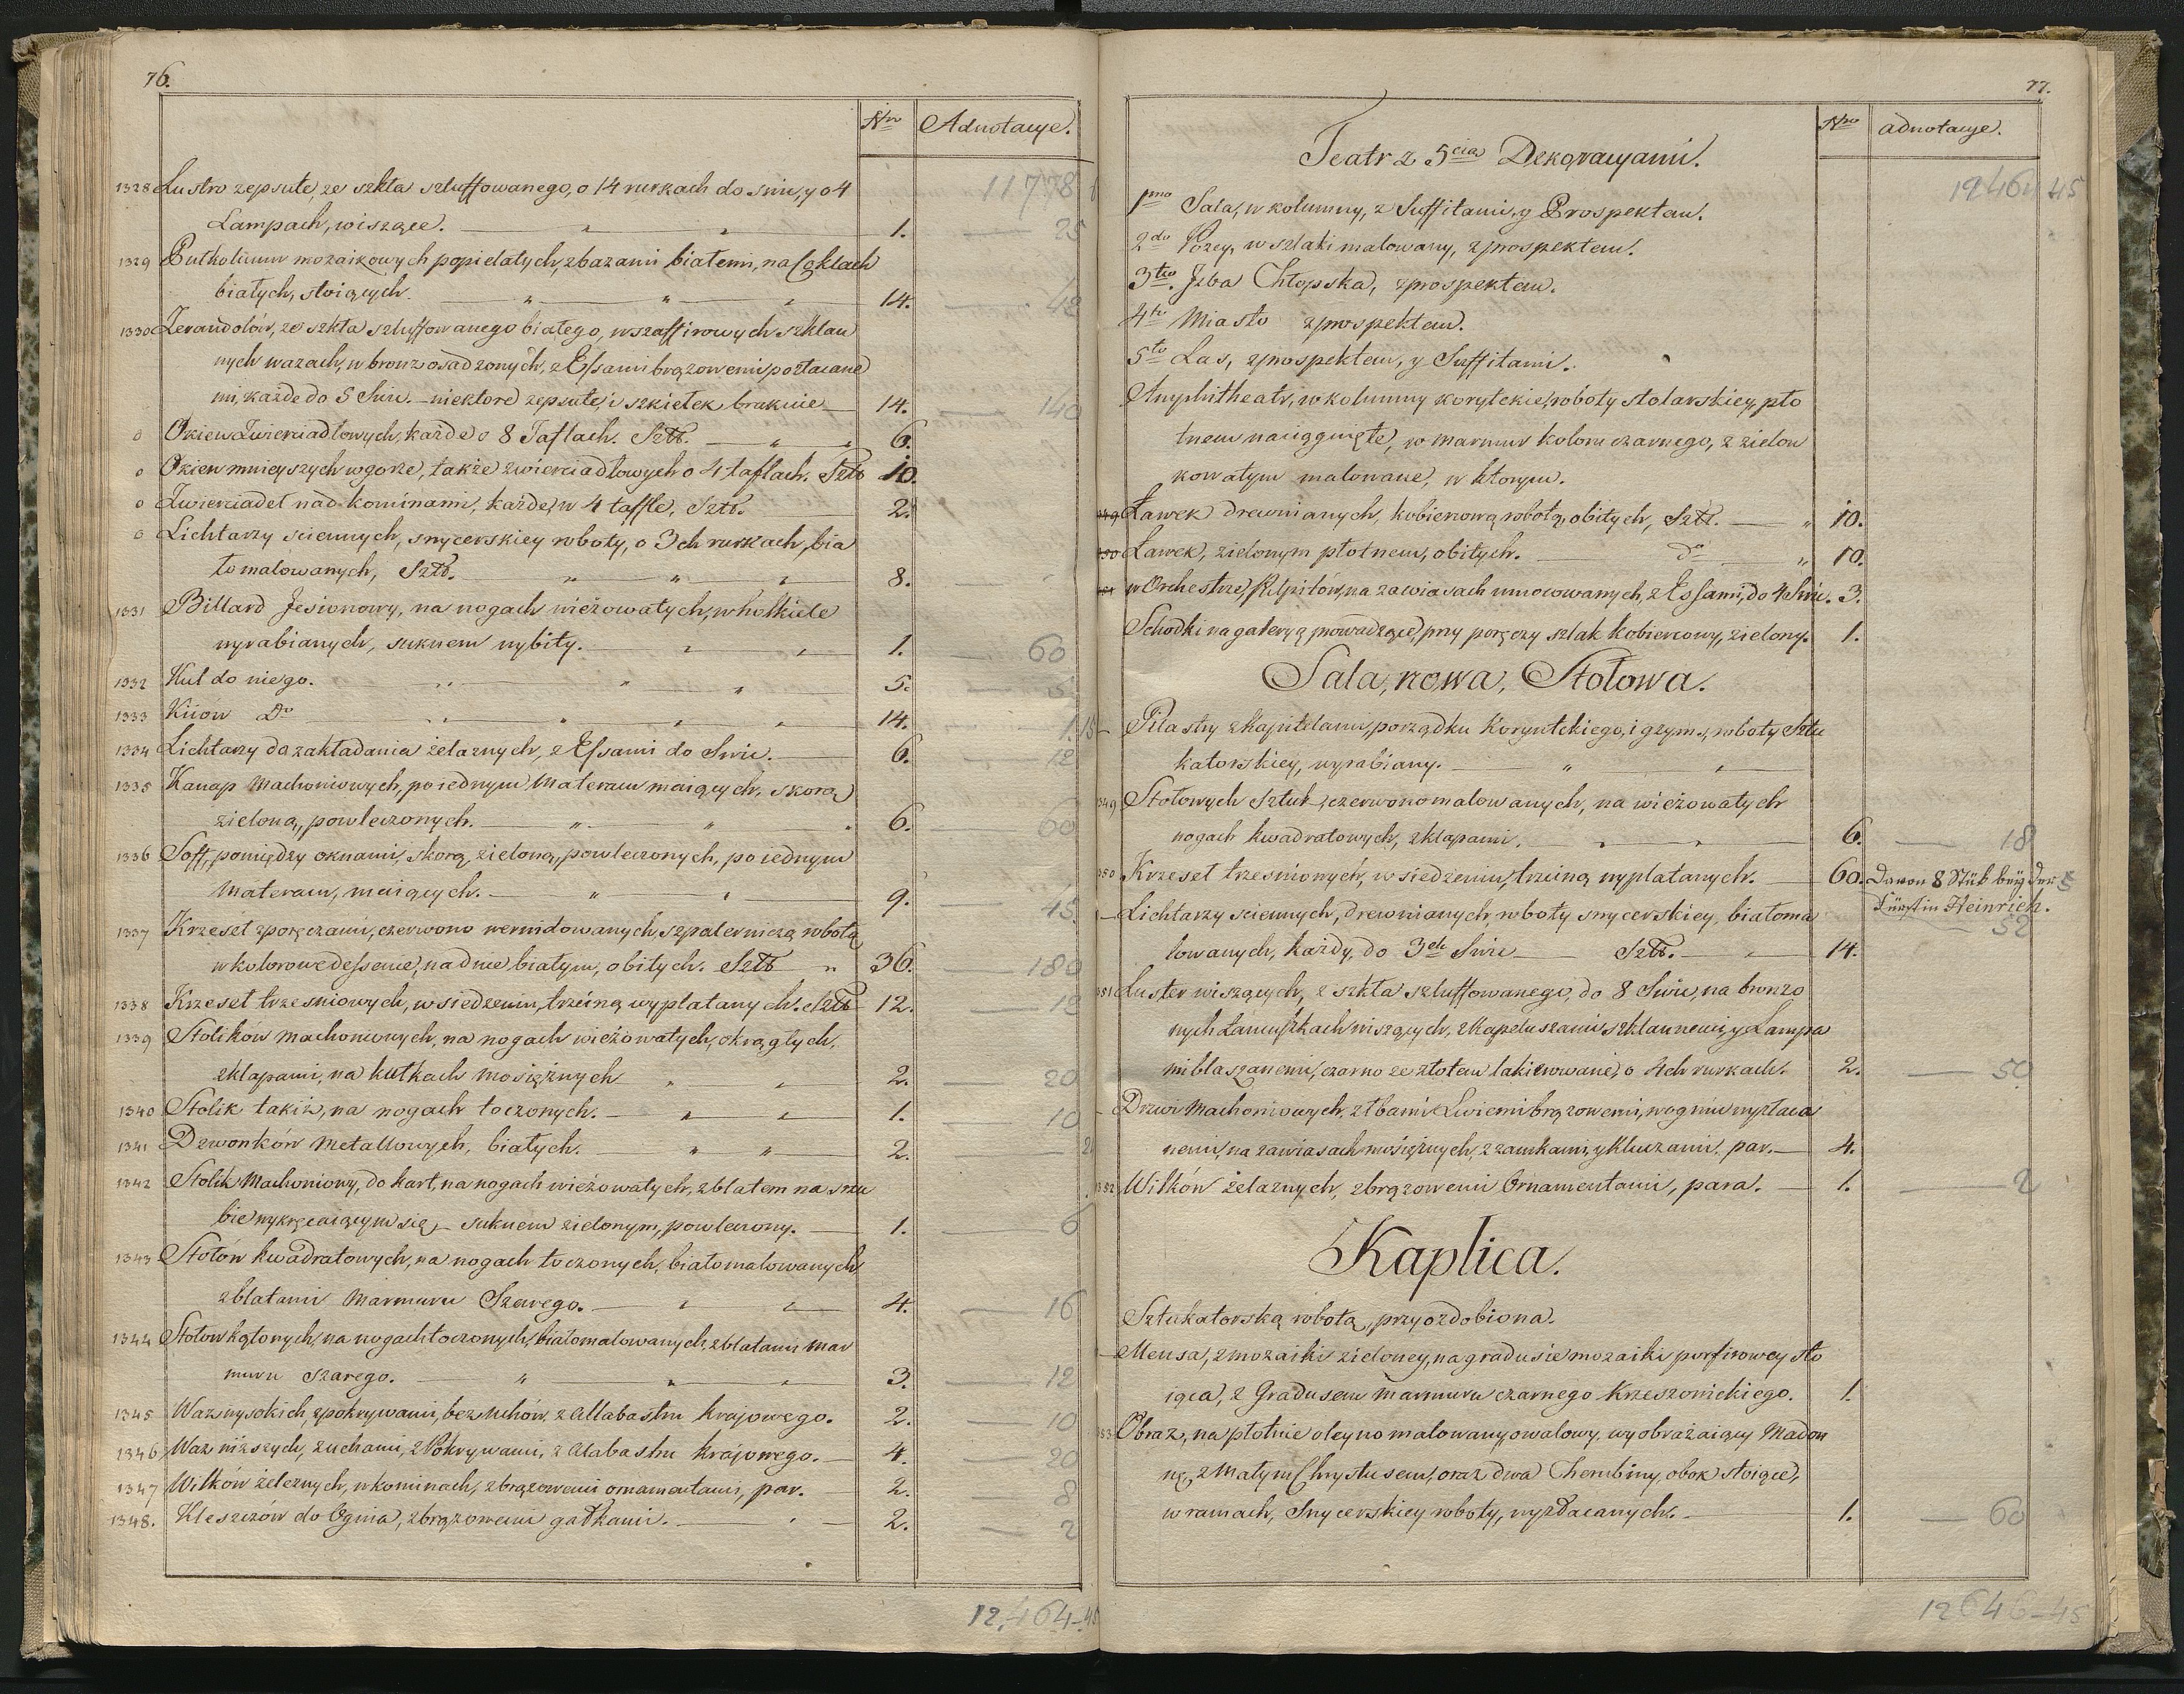 76.
Nro Adnotacye.
11.778
1328 Lustro zepsute, ze szkła szluffowanego, o 14 rurkach do Swic, y o 4
Lampach, wiszące. 1. 25
1329 Pułkolumn mozaikowych popielatych, z bazami białemi, na Coklach
białych, stoiących. 14. 42
1330 Zerandolów, ze szkła szluffowanego białego, w szaffirowych szklan
nych wazach, w bronz osadzonych, z Essami brązowemi pozłacane
mi, każde do 5 Swic. – niektore zepsute, i szkiełek brakuie 14. 140
o Okien Zwierciadłowych, każde o 8 Taflach. Sztk. 6.
o Okien mnieyszych w gorze, także zwierciadłowych o 4 taflach. Sztk 10.
o Zwierciadeł nad kominami, każde, w 4 taffle, Sztk. 2.
o Lichtarzy sciennych, snycerskiey roboty, o 3ch rurkach, bia
ło malowanych, Sztk. 8.
1331 Billard Jesionowy, na nogach wieżowatych, w holkiele
wyrabianych, suknem wybity. 1. 60
1332 Kul do niego. 5. 5
1333 Kiiow Do 14. 1. 15
1334 Lichtarzy do zakładania żelaznych, z Essami do Swic. 6. 12
1335 Kanap Machoniowych, po iednym Materacu maiących, skorą
zieloną, powleczonych. 6. 60
1336 Soff, pomiędzy oknami, skorą, zieloną, powleczonych, po iednym
Materacu, maiących. 9. 45
1337 Krzeseł z poręczami, czerwono wernidowanych, szpalerniczą robotą
w kolorowe dessenie, na dnie białym, obitych. Sztk 36. 180
1338 Krzeseł trzesniowych, w siedzeniu, trzciną wyplatanych. Sztk 12. 12
1339 Stolików Machoniowych, na nogach wieżowatych, okrągłych,
z klapami, na kułkach mosiężnych 2. 20
1340 Stolik takiż, na nogach toczonych. 1. 10
1341 Dzwonków Metallowych, białych. 2. 2
1342 Stolik Machoniowy, do kart, na nogach wieżowatych, z blatem na szru
bie wykręcaiącym się, – suknem zielonym, powleczony. 1. 6
1343 Stołów kwadratowych, na nogach toczonych, biało malowanych
z blatami Marmuru Szarego. 4. 16
1344 Stołow kątowych, na nogach toczonych, biało malowanych, z blatami Mar
muru szarego. 3. 12
1345 Waz wysokich, z pokrywami, bez Uchów, z Allabastru krajowego. 2. 10
1346 Waz niższych, z uchami, z Pokrywami, z Alabastru krajowego. 4. 20
1347 Wilków żeleznych, w kominach, z brązowemi ornamentami, par. 2. 8
1348. Kleszczów do Ognia, z brązowemi gałkami. 2. 2
12.464–45
77.
Nro adnotacye.
12464 45
Teatr z 5cią Dekoracyami.
1mo Sala, w kolumny, z Suffitami, y Prospektem.
2do Pokoy, w szlaki malowany, z prospektem.
3tio. Jzba Chłopska, z prospektem.
4to Miasto z prospektem.
5to Las, z prospektem, y Suffitami.
Amphitheatr, w kolumny koryntckie, roboty stolarskiey, pło
tnem naciągnięte, w marmur koloru czarnego, z zielon
kowatym malowane, w ktorym.
Ławek drewnianych, kobiercową robotą, obitych, Sztk. 10.
Ławek, zielonym płotnem, obitych. do 10.
w Orchestrze, Pulpitow, na zawiasach umocowanych, z Essami, do 4 Swic. 3.
Schodki na galeryą prowadzące, przy poręczy szlak kobiercowy, zielony. 1.
Sala, nowa, Stołowa.
Pilastry z kapitelami, porządku Koryntckiego, i gzyms, roboty Sztu
katorskiey, wyrabiany.
1349 Stołowych Sztuk, czerwono malowanych, na wieżowatych
nogach kwadratowych, z klapami. 6. 18
1350 Krzeseł trzesniowych, w siedzeniu, trzciną wyplatanych. 60. Davon 8 Stük bey der
Fürstin Heinrich.
52
Lichtarzy sciennych, drewnianych, roboty snycerskiey, biało ma
lowanych, każdy, do 3ch Swic Sztk. 14.
1351 Luster wiszących, z szkła szluffowanego, do 8 Swic, na bronzo
wych Łancuszkach wiszących, z Kapeluszami, szklannemi, y Lampa
mi blaszanemi, czarno ze złotem lakierowane, o 4ch rurkach. 2. 50
Drzwi Machoniowych, z łbami Lwiemi brązowemi, w ogniu wyzłaca
nemi, na zawiasach mosiężnych, z zamkami, y kluczami, par. 4.
1352 Wilków żelaznych, z brązowemi Ornamentami, para. 1. 2
Kaplica.
Sztukatorską robotą, przyozdobiona.
Mensa, z mozaiki zieloney, na gradusie mozaiki porfirowey sto
iąca, z Gradusem marmuru czarnego Krzeszowickiego. 1.
1353 Obraz, na płotnie oleyno malowany, owalowy, wyobrażaiący Madon
nę, z Małym Chrystusem, oraz dwa Cherubiny, obok stoiące,
w ramach, Snycerskiey roboty, wyzłacanych. 1. 60
12646–45